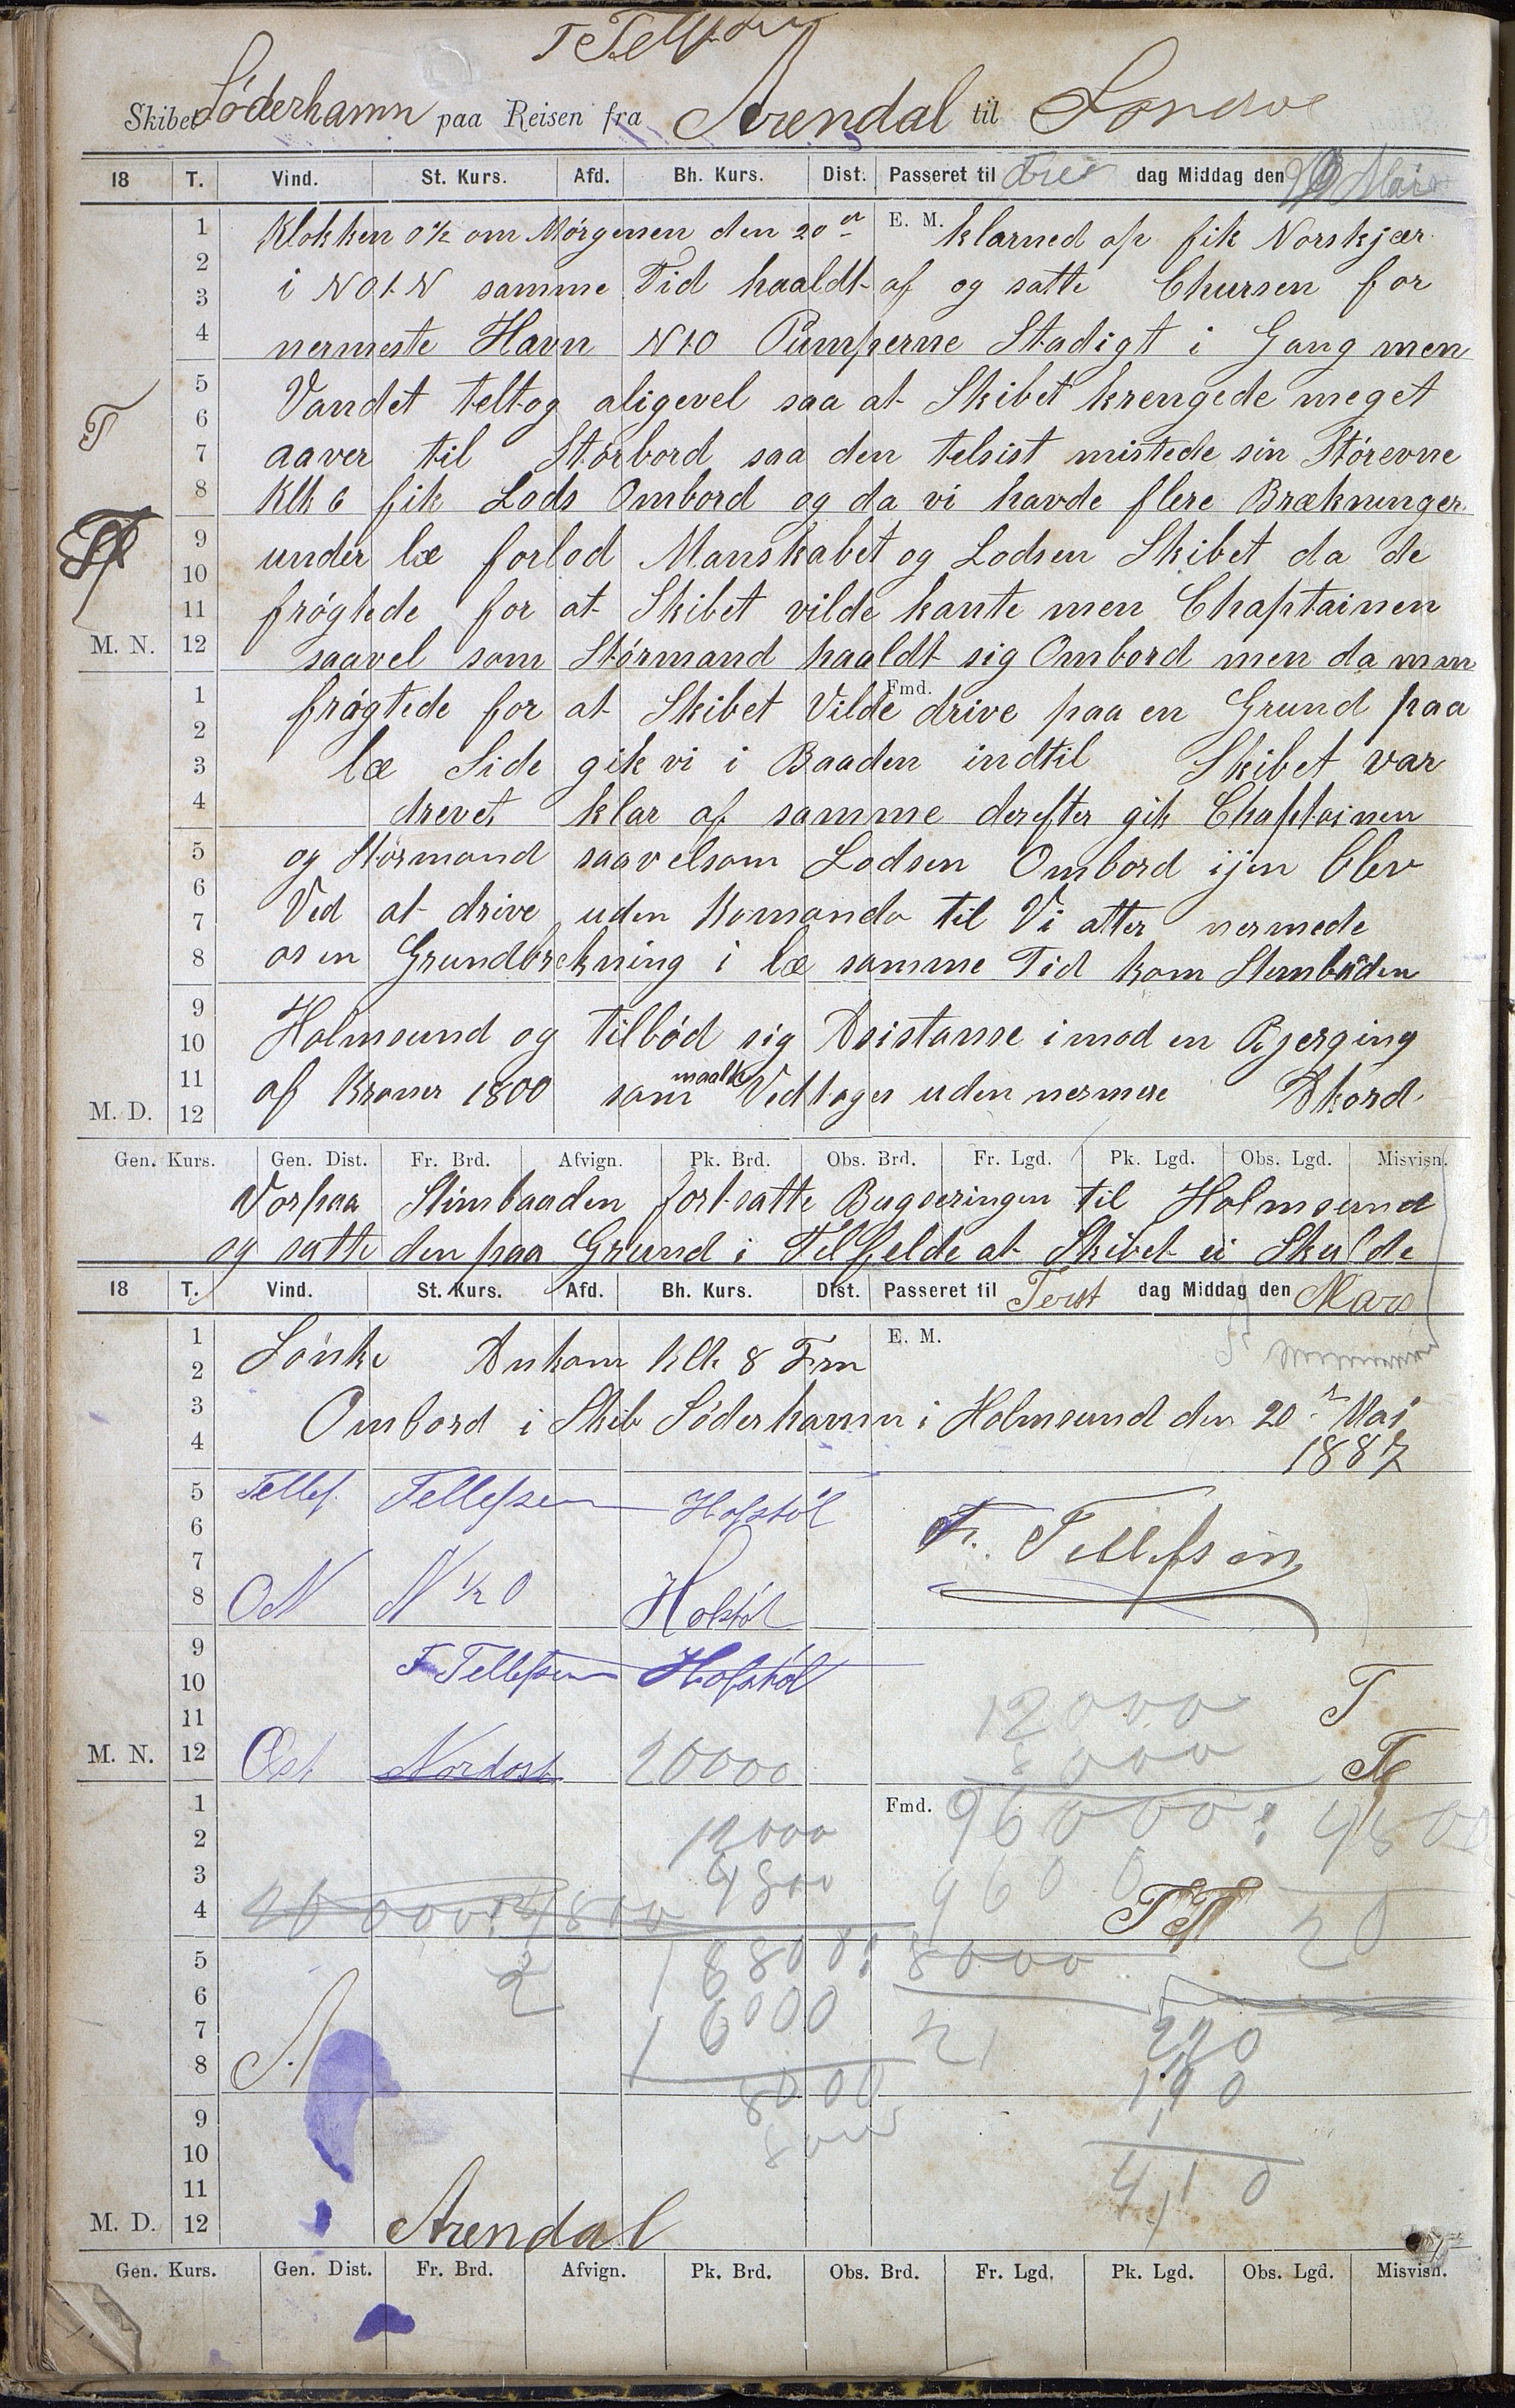 T Tellefsen
Skibet Söderhamn paa Reisen fra Arendal til
18 T. Vind. St. Kurs. Afd. Bh. Kurs. Dist. Passeret til Fre dag Middag den 20 Mai
1 Klokken 0 ½ om Mørgenen den 20 de E. M. klarned op fik Norskjær
2
3 i NOtN samme Tid haaldt af og satte Chursen for
4 nermeste Havn NtO Pumperne Stadigt i Gang men
5 Vandet teltog aligevel saa at Skibet krengede meget
6
7 aaver til Størbord saa den telsist mistede sin Størevne
8 Klk 6 fik Lods Ombord og da vi havde flere Brækninger
9 under læ forlod Manskabet og Lodsen Skibet da de
10
11 frøgtede for at Skibet vilde kante men Chaptainen
M. N. 12 saavel som Størmand haaldt sig Ombord men da man
1 frøgtede for at Skibet Vilde Fmd. drive paa en Grund paa
2
3 læ Side gik vi i Baaden indtil Skibet var
4 drevet klar af samme derefter gik Chaptainen
5 og Størmand saavelsom Lodsen Ombord ijen blev
6 Ved at drive uden Komando til Vi atter nermede
7
8 os en Grundbrekning i læ samme Tid kom Stembåden
9 Holmsund og tilbød sig Asistanse imod en Bjerging
10
11 af Kroner 1800 som maatte Vedtages uden nermere Akord.
M. D. 12
Gen. Kurs. Gen. Dist. Fr. Brd. Afvign. Pk. Brd. Obs. Brd. Fr. Lgd. Pk. Lgd. Obs. Lgd. Misvisn.
Vorpaa Stimbaaden fortsatte Bugseringen til Holmsund
og satte den paa Grund i Telfelde at Skibet ei Skulde
18 T. Vind. St. Kurs. Afd. Bh. Kurs. Dist. Passeret til Terst dag Middag den Mars
1 Sønke Ankom Klk 8 Fm E. M.
2
3 Ombord i Skib Söderhamn i Holmsund den 20 Mai
4 1887
5 Tellef Tellefsen Hofstøl
6 T. Tellefsen
7
8 N ½ O Hofstøl
9
10 T Tellefsen Hofstøl
11 12000 T
M. N. 12 Øst Nordost 20000 8000 T
1 Fmd. 96000 : 4800
2 12000
3 4800 9600
4 4800 TT 20
5 2 16800 : 8000
6
7 16000 21 220
8 8000 190
9 8000
10
11 410
M. D. 12 Arendal
Gen. Kurs. Gen. Dist. Fr. Brd. Afvign. Pk. Brd. Obs. Brd. Fr. Lgd. Pk. Lgd. Obs. Lgd. Misvisn.